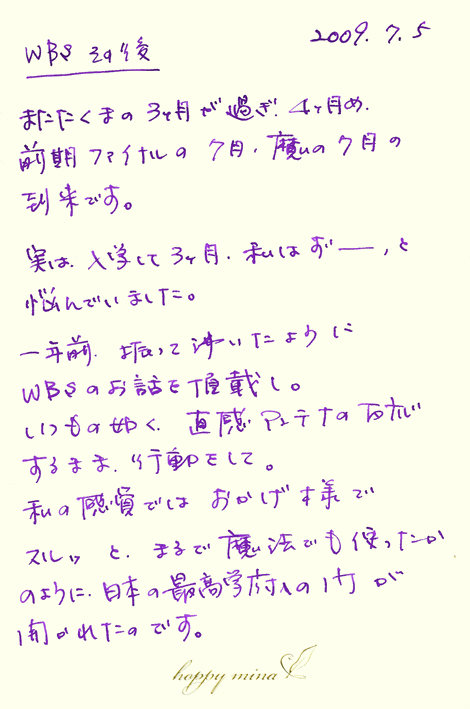 2009.7.5
WBS その後
またたくまの3ヶ月が過ぎ、4ヶ月め.
前期ファイナルの7月、魔の7月の
到来です。
実は、入学して3ヶ月、私はずー、と
悩んでいました。
一年前、振って沸いたように
WBSのお話を頂戴し。
いつもの如く、直感アンテナの反応
するまま、行動をして。
私の感覚では おかげ様で
スルッと、まるで魔法でも使ったか
のように、日本の最高学府への門が
開かれたのです。
happy mina